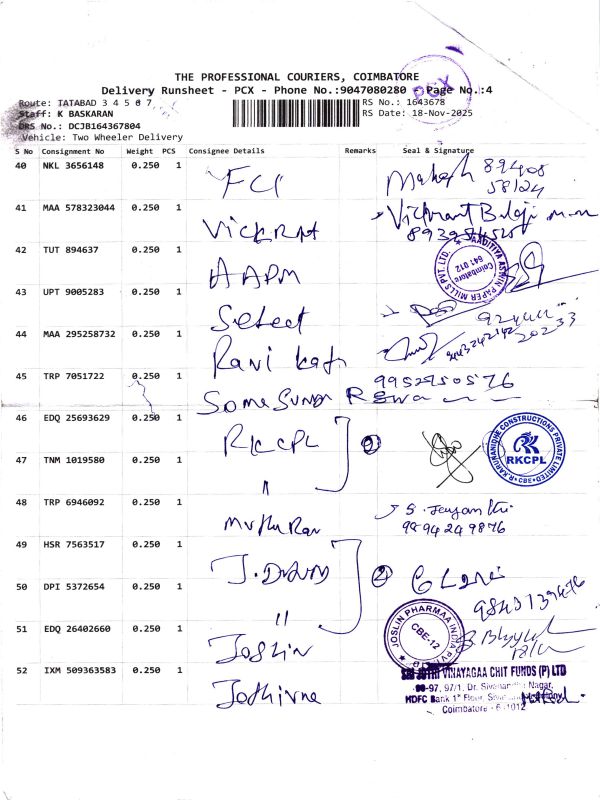 THE PROFESSIONAL COURIERS, COIMBATORE
Delivery Runsheet - PCX - Phone No.:9047080280 - Page No.:4
PCX
Route: TATABAD 3 4 5 6 7
Staff: K BASKARAN
DRS No.: DCJB164367804
Vehicle: Two Wheeler Delivery
RS No.: 1643678
RS Date: 18-Nov-2025
S No Consignment No Weight PCS Consignee Details Remarks Seal & Signature
40 NKL 3656148 0.250 1 FCI Mahesh 89408 58124
41 MAA 578323044 0.250 1 Vickrat Vickrant Balaji
42 TUT 894637 0.250 1 AAPM
AADITYA ASWIN PAPER MILLS PVT. LTD. Coimbatore 641 012
43 UPT 9005283 0.250 1 Select
44 MAA 295258732 0.250 1 Ravi
45 TRP 7051722 0.250 1 Soma Sundar 9952950576
46 EDQ 25693629 0.250 1 RKCPL 2
R. KARUNANIDHI CONSTRUCTIONS PRIVATE LIMITED RKCPL CBE
47 TNM 1019580 0.250 1 "
48 TRP 6946092 0.250 1 S. Jayanthi
9894249876
49 HSR 7563517 0.250 1 2
50 DPI 5372654 0.250 1 "
51 EDQ 26402660 0.250 1 Joslin
JOSLIN PHARMAA INDIA PVT CBE-12
52 IXM 509363583 0.250 1
SRI JOTHI VINAYAGAA CHIT FUNDS (P) LTD
97, 97/1, Dr. Sivanandha Nagar,
HDFC Bank 1st Floor,
Coimbatore - 641012